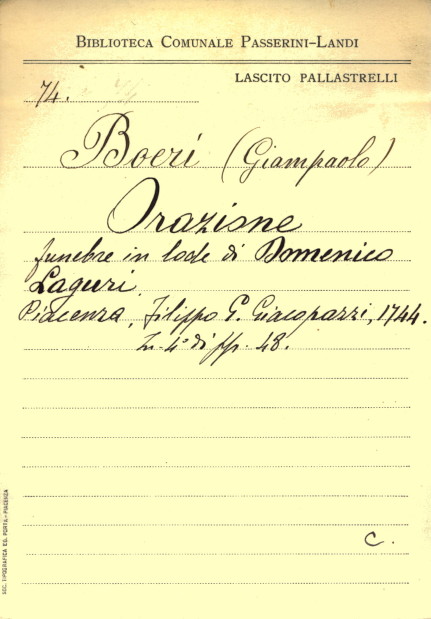 BIBLIOTECA COMUNALE PASSERINI-LANDI
LASCITO PALLASTRELLI
74.
Boeri (Giampaolo)
Orazione
funebre in lode di Domenico
Laguri.
Piacenza, Filippo G. Giacopazzi, 1744.
In-4° di pp. 48.
C.
SOC. TIPOGRAFICA ED. PORTA-PIACENZA